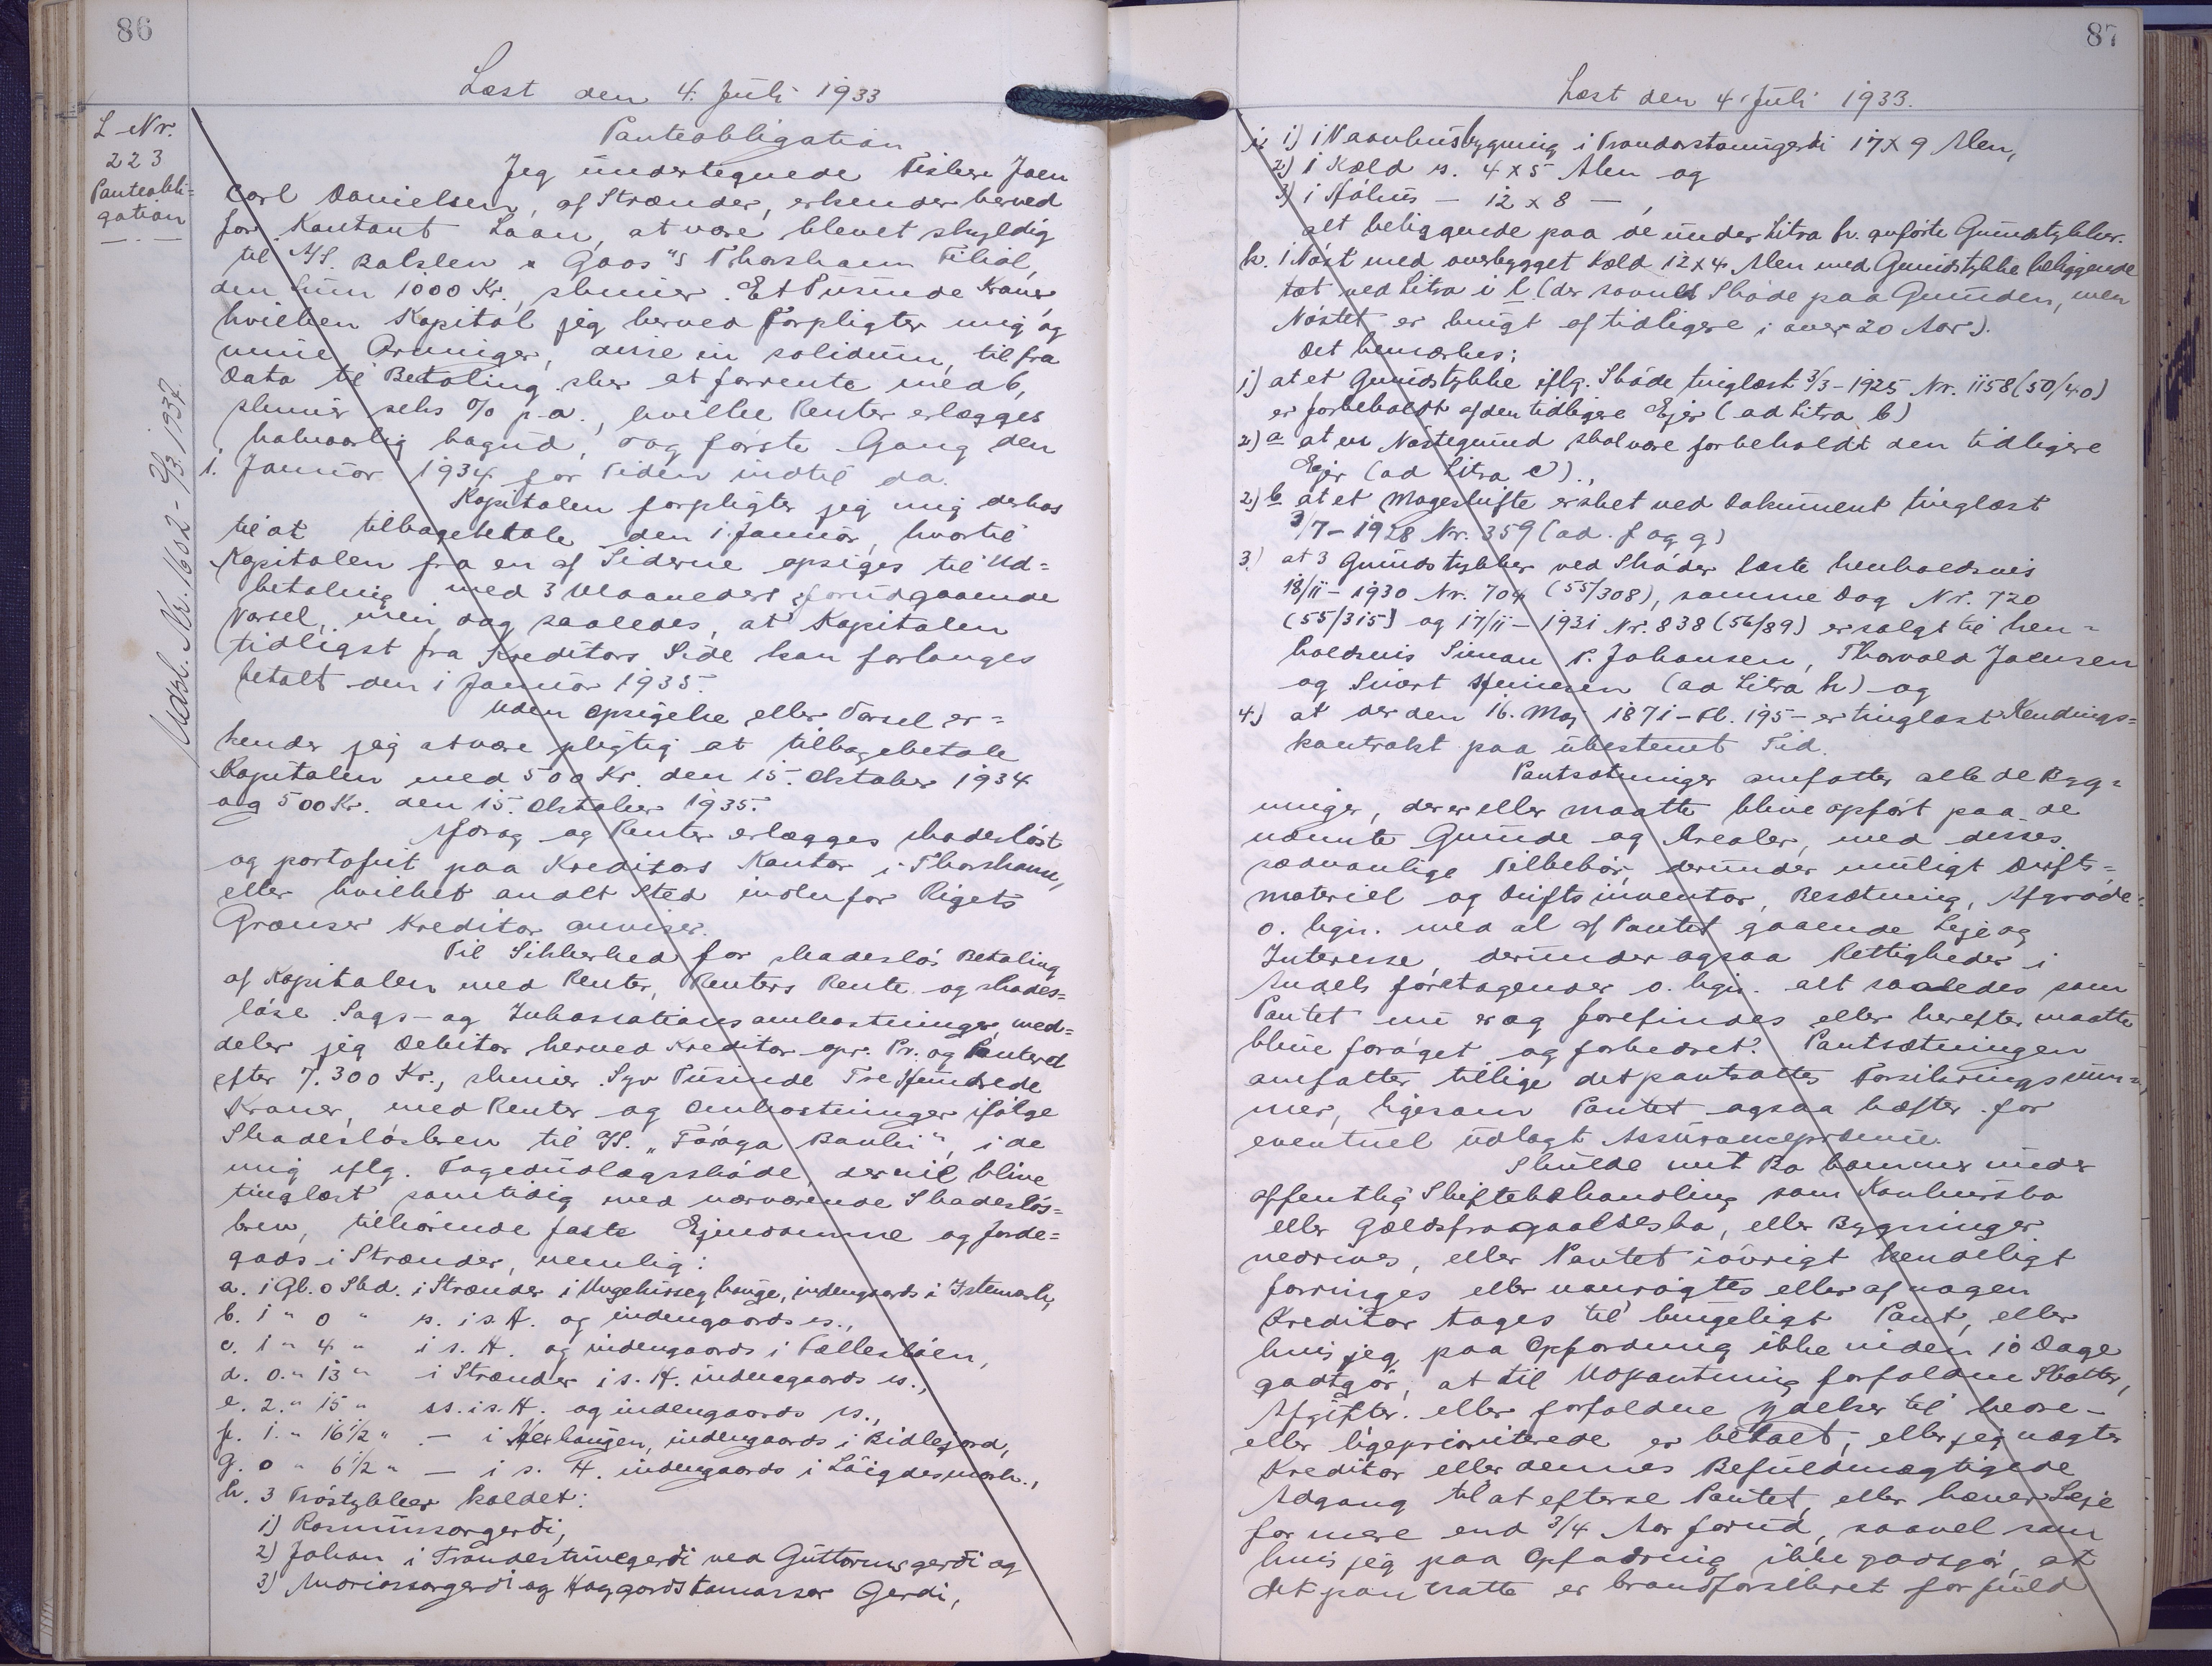 86
Læst den 4. Juli 1933
L-Nr.
223
Panteobli=
gation
Udsl. Nr. 1602 - 2/3 1937.
Panteobligation
Jeg undertegnede Fisker Joen
Carl Danielsen, af Strænder, erkender herved
for Kontant Laan, at være blevet skyldig
til A/S. Balslev & Goos "s Thorshavn Filial,
den Sum 1000 Kr., skriver Et Tusinde Kroner
hvilken Kapital jeg herved forpligter mig og
mine Arvinger, disse in solidum, til fra
Dato til Betaling sker at forrente med 6,
skriver seks % p-a., hvilke Renter erlægges
halvaarlig bagud, og første Gang den
1. Januar 1934 for Tiden indtil da.
Kapitalen forpligter jeg mig derhos
til at tilbagebetale den 1. Januar, hvortil
Kapitalen fra en af Siderne opsiges til Ud=
betaling med 3 Maaneders forudgaaende
Varsel, men dog saaledes, at Kapitalen
tidligst fra Kreditors Side kan forlanges
betalt den 1 Januar 1935.
Uden Opsigelse eller Varsel er=
kender jeg at være pligtig at tilbagebetale
Kapitalen med 500 Kr. den 15. Oktober 1934
og 500 Kr. den 15. Oktober 1935.
Afdrag og Renter erlægges skadesløst
og portofrit paa Kreditors Kontor i Thorshavn,
eller hvilket andet Sted indenfor Rigets
Grænser Kreditor anviser.
Til Sikkerhed for skadesløs Betaling
af Kapitalen med Renter, Renters Rente og skades=
løse Sags- og Inkassationsomkostninger, med=
deler jeg Debitor herved Kreditor opr. Pr. og Panteret
efter 7.300 Kr., skriver Syv Tusinde Tre Hundrede
Kroner, med Renter og Omkostninger ifølge
Skadesløsbrev til A/S. „Føroya Banki", i de
mig iflg. Tagedudlægsskøde, der vil blive
tinglæst samtidig med nærværende Skadesløs=
brev, tilhørende faste Ejendomme og Jorde=
gods i Strænder, nemlig:
a. 1 Gl. 0 Skd. i Strænder i Ungehusseg hauge, indengaards i Istemark,
b. 1 " 0 " ss. i s. H. og indengaards ss.,
c. 1 " 4 " i s. H. og indengaards i Fællesbøen,
d. 0. " 13 " i Strænder i s. H. indengaards ss.,
e. 2. " 15 " ss. i s. H. og indengaards ss.,
f. 1. " 16 1/2 " - i Nerhaugen, indengaards i Ridlegord,
g. 0 " 6 1/2 " - i s. H. indengaards i Løigdesmark.,
h. 3 Trøstykker kaldet:
1) Rasmussargerði,
2) Johan i Trøndestuvegerði ved Guttormsgerði og
3) Mariassargerði og Haggardstomassar Gerdi,
87
Læst den 4. Juli 1933.
i. 1) 1 Vaanhusbygning i Trondarstovugerði 17 x 9 Alen,
2) 1 Kæld ss. 4 x 5 Alen og
3) 1 Hjálhus - 12 x 8 - ,
alt beliggende paa de under Litra h. anførte Grundstykker.
k. 1 Nøst med overbygget Kæld 12 x 4 Alen med Grundstykke beliggende
tæt ved Litra i l (der savnes Skøde paa Grunden, men
Nøstet er brugt af tidligere i over 20 Aar).
Det bemærkes:
1) at et Grundstykke iflg. Skøde tinglæst 3/3 - 1925 Nr. 1158 (50/40)
er forbeholdt af den tidligere Ejer (ad Litra b)
2) a at en Nøstegrund skal være forbeholdt den tidligere
Ejer (ad Litra c).,
2) b at et Mageskifte er sket ved Dokument tinglæst
3/7 - 1928 Nr. 359 (ad. f og g)
3) at 3 Grundstykker ved Skøder læste henholdsvis
18/11 - 1930 Nr. 704 (55/308), samme Dag Nr. 720
(55/315) og 17/11 - 1931 Nr. 838 (56/89) er solgt til hen=
holdsvis Simon P. Johansen, Thorvald Joensen
og Snært Heinesen (ad Litra h) og
4.) at der den 16. Maj 1871 - Fl. 195 - er tinglæst Kendings=
kontrakt paa ubestemt Tid.
Pantsætninger omfatter alle de Byg=
ninger, der er eller maatte blive opført paa de
nævnte Grunde og Arealer, med disses
sædvanlige Tilbehør, derunder muligt Drifts=
materiel og Driftsinventar, Besætning, Afgrøde
o. lign. med al af Pantet gaaende Leje og
Interesse, derunder ogsaa Rettigheder i
Andels foretagender o. lign. alt saaledes som
Pantet nu er og forefindes eller herefter maatte
blive forøget og forbedret. Pantsætningen
omfatter tillige det pantsattes Forsikringssum=
mer, ligesom Pantet ogsaa hæfter for
eventuel udlagt Assurancepræmie.
Skulde mit Bo komme under
offentlig Skiftebehandling som Konkursbo
eller Gældsfragaaelsesbo, eller Bygninger
nedrives, eller Pantet iøvrigt kendeligt
forringes eller vanrøgtes eller af nogen
Kreditor tages til brugeligt Pant, eller
hvis jeg paa Opfordring ikke inden 10 Dage
godtgør, at til Udpantning forfaldne Skatter,
Afgifter eller forfaldne Ydelser til bedre-
eller ligeprioriterede er betalt, eller jeg nægter
Kreditor eller dennes Befuldmægtigede
Adgang til at efterse Pantet, eller hæver Leje
for mere end 3/4 Aar forud, saavel som
hvis jeg paa Opfordring ikke godtgør, at
det pantsatte er brandforsikret for fuld